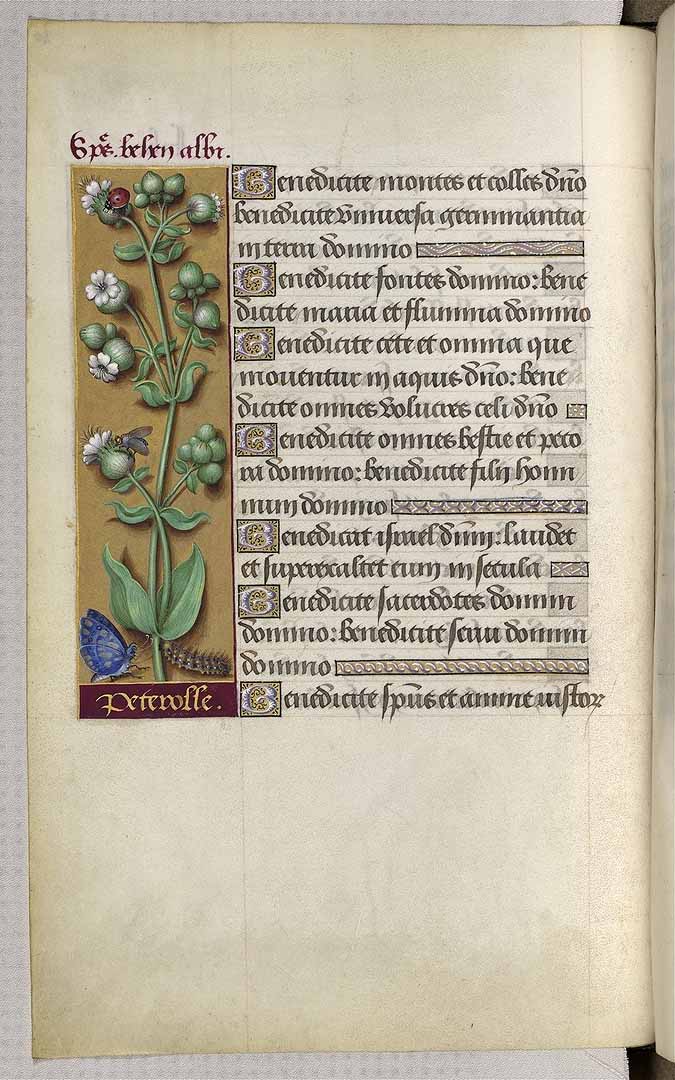 Spēs. behen albi.
Benedicite montes et colles dn̄o
benedicite vniuersa germinantia
in terra domino
Benedicite fontes domino: bene
dicite maria et flumina domino
Benedicite cete et omnia que
mouentur in aquis dn̄o: bene
dicite omnes volucres celi dn̄o
Benedicite omnes bestie et peco
ra domino: benedicite filij homi
num domino
Benedicat israel dnm̄: laudet
et superexaltet eum in secula
Benedicite sacerdotes domini
domino: benedicite serui domini
domino
Benedicite sp̄us et anime iustor
Peterolle.